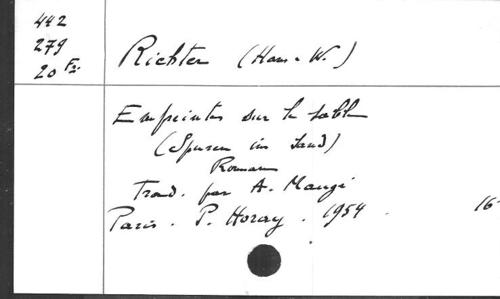 442
279
20 Fr.
Richter (Hans-W.)
Empreintes sur le sable
(Spuren im Sand)
Roman
Trad. par A. Maugé
Paris. P. Horay. 1954. 16-